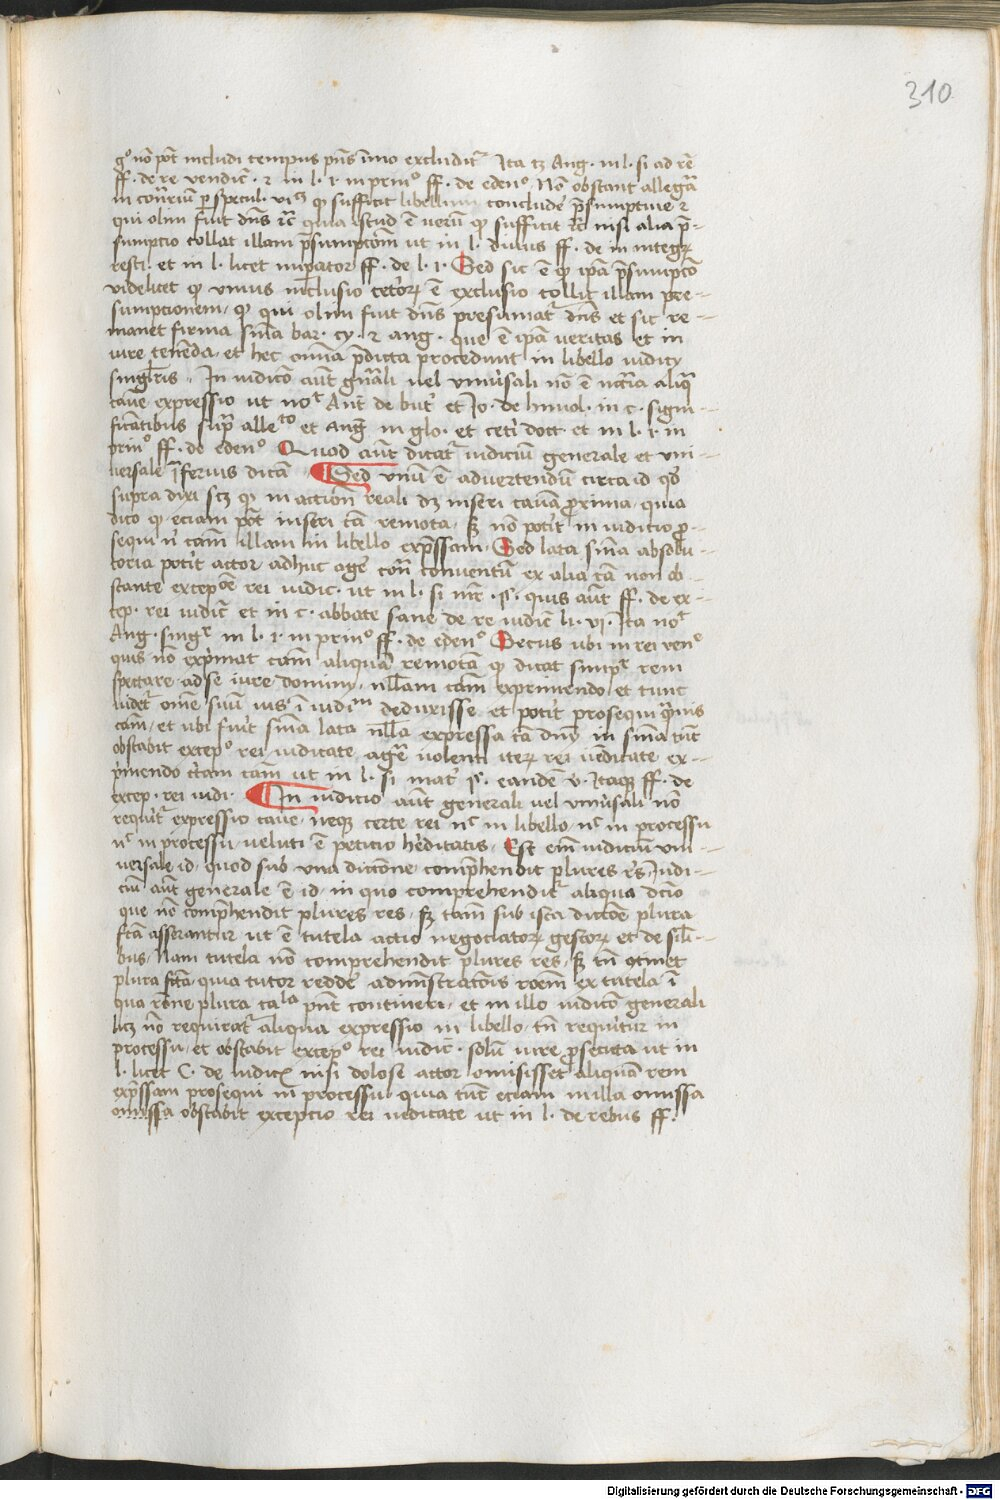 310
g° nō pōt includi tempus pn̄s ymo excluditr̄ Ita tꝫ Ang. in l. si ad rē
ff. de re vendic̄. ⁊ in l. 1. in prin° ff. de eden° Nō obstant allegāta
in contrium per specul. qꝫ sufficit libellum concludē p̄sumptive ⁊
qui olim fuit dn̄s ⁊c̄ quia istud ē verū qꝫ sufficit nisi alia p̄-
sumptio tollat illam p̄sumptōm ut in l. divus ff. de in integꝝ
resti. et in l. licet imperator ff. de l. 1. Sed sic ē qꝫ ip̄a p̄sumptō
videlicet qꝫ unius inclusio ceteroꝝ ē exclusio tollit illam pre-
sumptionem qꝫ qui olim fuit dn̄s presumatr̄ dn̄s et sic re-
manet firma sn̄ia bar. cy. ⁊ ang. que ē ip̄a veritas et in
iure tenenda et hec omnia p̄dicta procedunt in libello iudicii
singlaris. In iudicō aūt gn̄ali vel univ̄sali nō ē nc̄cria aliqua
cause expressio ut not Ant de but̄ et Jo. de Imol. in c. signi-
ficantibus sup̄ alleto et Ang in glo. et cetī doct et in l. 1. in
prin° ff. de eden° Quod aūt dicatr̄ iudicium generale et uni-
versale īferius dicā Sed unū ē advertendū circa id qd̄
supra dixi scꝫ qꝫ in actiōn reali dꝫ inseri causa proxima quia
dico qꝫ eciam pōt inseri cā remota sꝫ nō potit̄ in iudicio pro-
sequi nī cām illam in libello exp̄ssam. Sed lata sn̄ia absolu-
toria potit̄ actor adhuc agē contra conventū ex alia cā non ob-
stante excepōe rei iudic. ut in l. si mr̄. §. quis aūt ff. de ex-
cep. rei iudic̄ et in c. abbate sane de re iudic̄ li. vi. Ita not
Ang. singr in l. 1. in prin° ff. de eden° Secus ubi in rei ven̄e
quis nō exp̄mat cām aliquā remotā qꝫ dicat simpr rem
spectare ad se iure dominii nllam cām exprimendo et tunc
videt̄ omē suū ius ī iudim deduxisse et potit̄ prosequi
cām et ubi fuit sn̄ia lata nlla expressa cā in sn̄ia tūc
obstabit excep° rei iudicate agē volenti iteꝝ rei vēdicate ex-
p̄mendo c̄tam cām ut in l. si mat̄ §. eandē v. Itaqꝫ ff. de
excep. rei iudi. In iudicio aūt generali vel univ̄sali nō
requirit̄ expressio cause neqꝫ certe rei nc̄ in libello nc̄ in processu
nc̄ in processu veluti ē peticio hēditatis. Est em̄ iudiciū uni-
versale id quod sub una dictione comp̄hendit plures rēs. Iudi-
ciū aūt generale ē id in quo comprehenditr̄ aliqua dictio
que nō comp̄hendit plures res sꝫ tam̄ sub ista dictōe plura
fc̄ta asserantur ut ē tutela actio negociatoꝝ gestoꝝ et de simili-
bus Nam tutela nō comprehendit plures res sꝫ tn̄ ꝯtinet
plura fc̄ta quia tutor reddet adminstratiōis rōem ex tutela ī
qua rōne plura ca la pn̄t contineri et in illo iudicō generali
licꝫ nō requiratr̄ aliqua expressio in libello tn̄ requiritur in
processu et obstabit excep° rei iudic̄. solū iure prosecuta ut in
l. licet C. de iudic̄ nisi dolose actor omisisset aliquā rem
exp̄ssam prosequi in processu quia tūc eciam in illa omissa
omissa obstabit exceptio rei iudicate ut in l. de rebus ff.
Digitalisierung gefördert durch die Deutsche Forschungsgemeinschaft - DFG